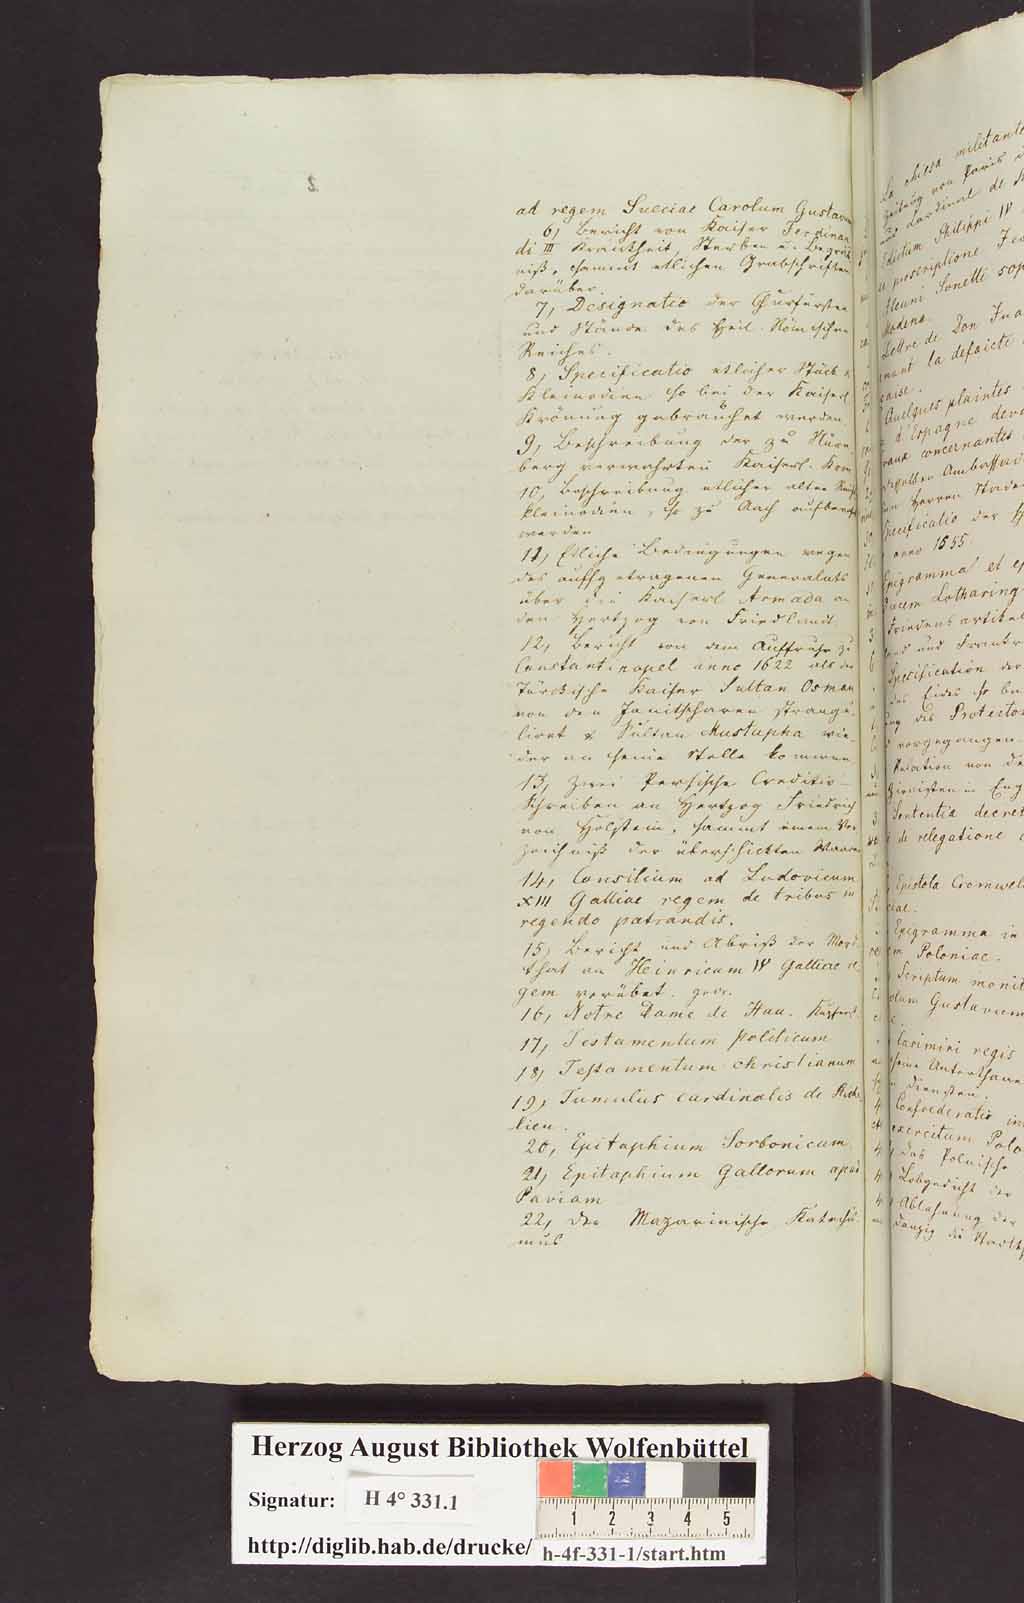 ad regem Sueciae Carolum Gustavum
6, Bericht von Kaiser Ferdinan
di III Krankheit, Sterben u. Begräb
niß, sammt etlichen Grabschriften
darüber.
7, Designatio der Churfürsten
und Stände des Heil. Römischen
Reiches.
8, Specificatio etlicher Stück
Kleinodien so bei der Kaiserl
Krönung gebrauchet werden
9, Beschreibung der zu Nürn
berg verwahrten Kaiserl. Kron
10, Beschreibung etlicher alten
Kleinodien, so zu Aach aufbewahrt
werden
11, Etliche Bedingungen wegen
des aufgetragenen Generalats
über die Kaiserl Armada an
den Hertzog von Friedland
12, Bericht von dem Auffruhr zu
Constantinopel anno 1622 als der
Türckische Kaiser Sultan Osman
von den Janitscharen strangu-
liret & Sultan Mustapha wie-
der an seine Stelle kommen
13, Zwei Persische Creditiv-
Schreiben an Hertzog Friedrich
von Holstein, sammt einem Ver
zeichniß der überschickten Waaren
14, Consilium ad Ludovicum
XIII Galliae regem de tribus in
regendo patrandis.
15, Bericht und Abriß der Mord
that an Heinricum IV Galliae re
gem verübet. gedr.
16, Notre Dame de Hau.
17, Testamentum politicum
18, Testamentum christianum
19, Tumulus cardinalis de Riche
lieu.
20, Epitaphium Sorbonicum
21, Epitaphium Gallorum apud
Paviam
22, Der Mazarinische Katechis
mus
La chiesa militante
Zeitung von Paris
Cardinal de
Edictum Philippi IV
proscriptione
Sonetti sop
Modena
Lettre de Don Jua
nant la defaicte
caise.
Quelques plaintes
d'Espagne
concernantes
Ambassad
Herren Staden
Specificatio der
anno 1555.
Epigramma et
Ducem Lotharing
Friedensartikel
und
Specification der
des Eides so
des Protector
vorgegangen
Relation von
in Eng
Sententia decret
de relegatione
Epistola Cromwel
ciae.
Epigramma in
Poloniae.
Scriptum monit
olum Gustavum
Casimiri regis
seine Unterthanen
diensten.
Confoederatio in
exercitum Polo
das Polnische
Lobgedicht der
Ablehnung der
Danzig
Herzog August Bibliothek Wolfenbüttel
Signatur: H 4° 331.1
1 2 3 4 5
http://diglib.hab.de/drucke/ h-4f-331-1/start.htm